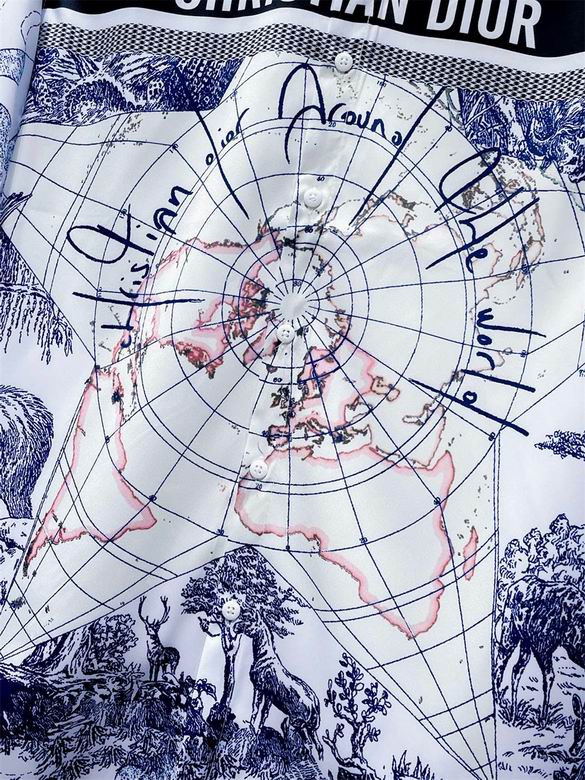 CHRISTIAN DIOR
Christian Dior Around The world